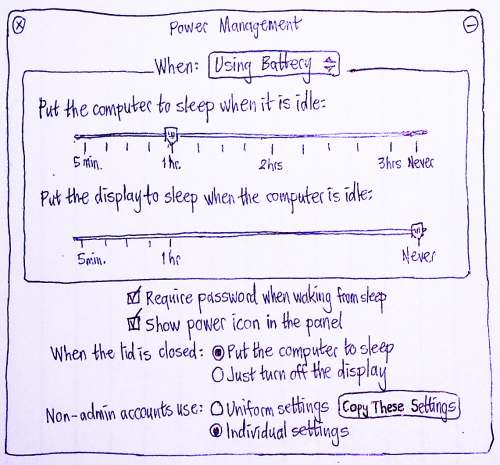 Power Management
When: Using Battery
Put the computer to sleep when it is idle:
5 min. 1 hr. 2hrs 3hrs Never
Put the display to sleep when the computer is idle:
5min. 1 hr Never
Require password when waking from sleep
Show power icon in the panel
When the lid is closed: Put the computer to sleep
Just turn off the display
Non-admin accounts use: Uniform settings Copy These Settings
Individual settings